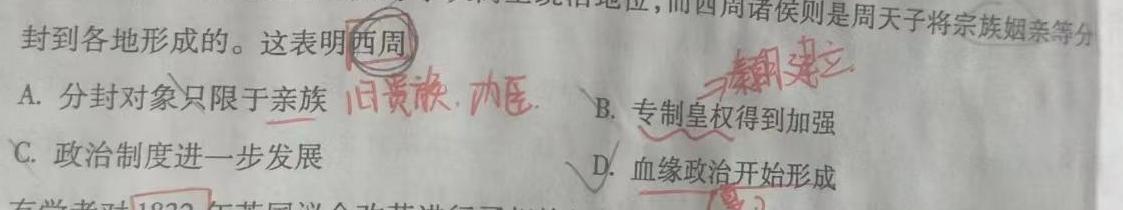 统治地位,而西周诸侯则是周天子将宗族姻亲等分
封到各地形成的。这表明西周
⇒秦朝建立.
A. 分封对象只限于亲族 旧贵族. 功臣. B. 专制皇权得到加强
C. 政治制度进一步发展 D. 血缘政治开始形成
夏?
有学者对1832年英国议会改革进行了